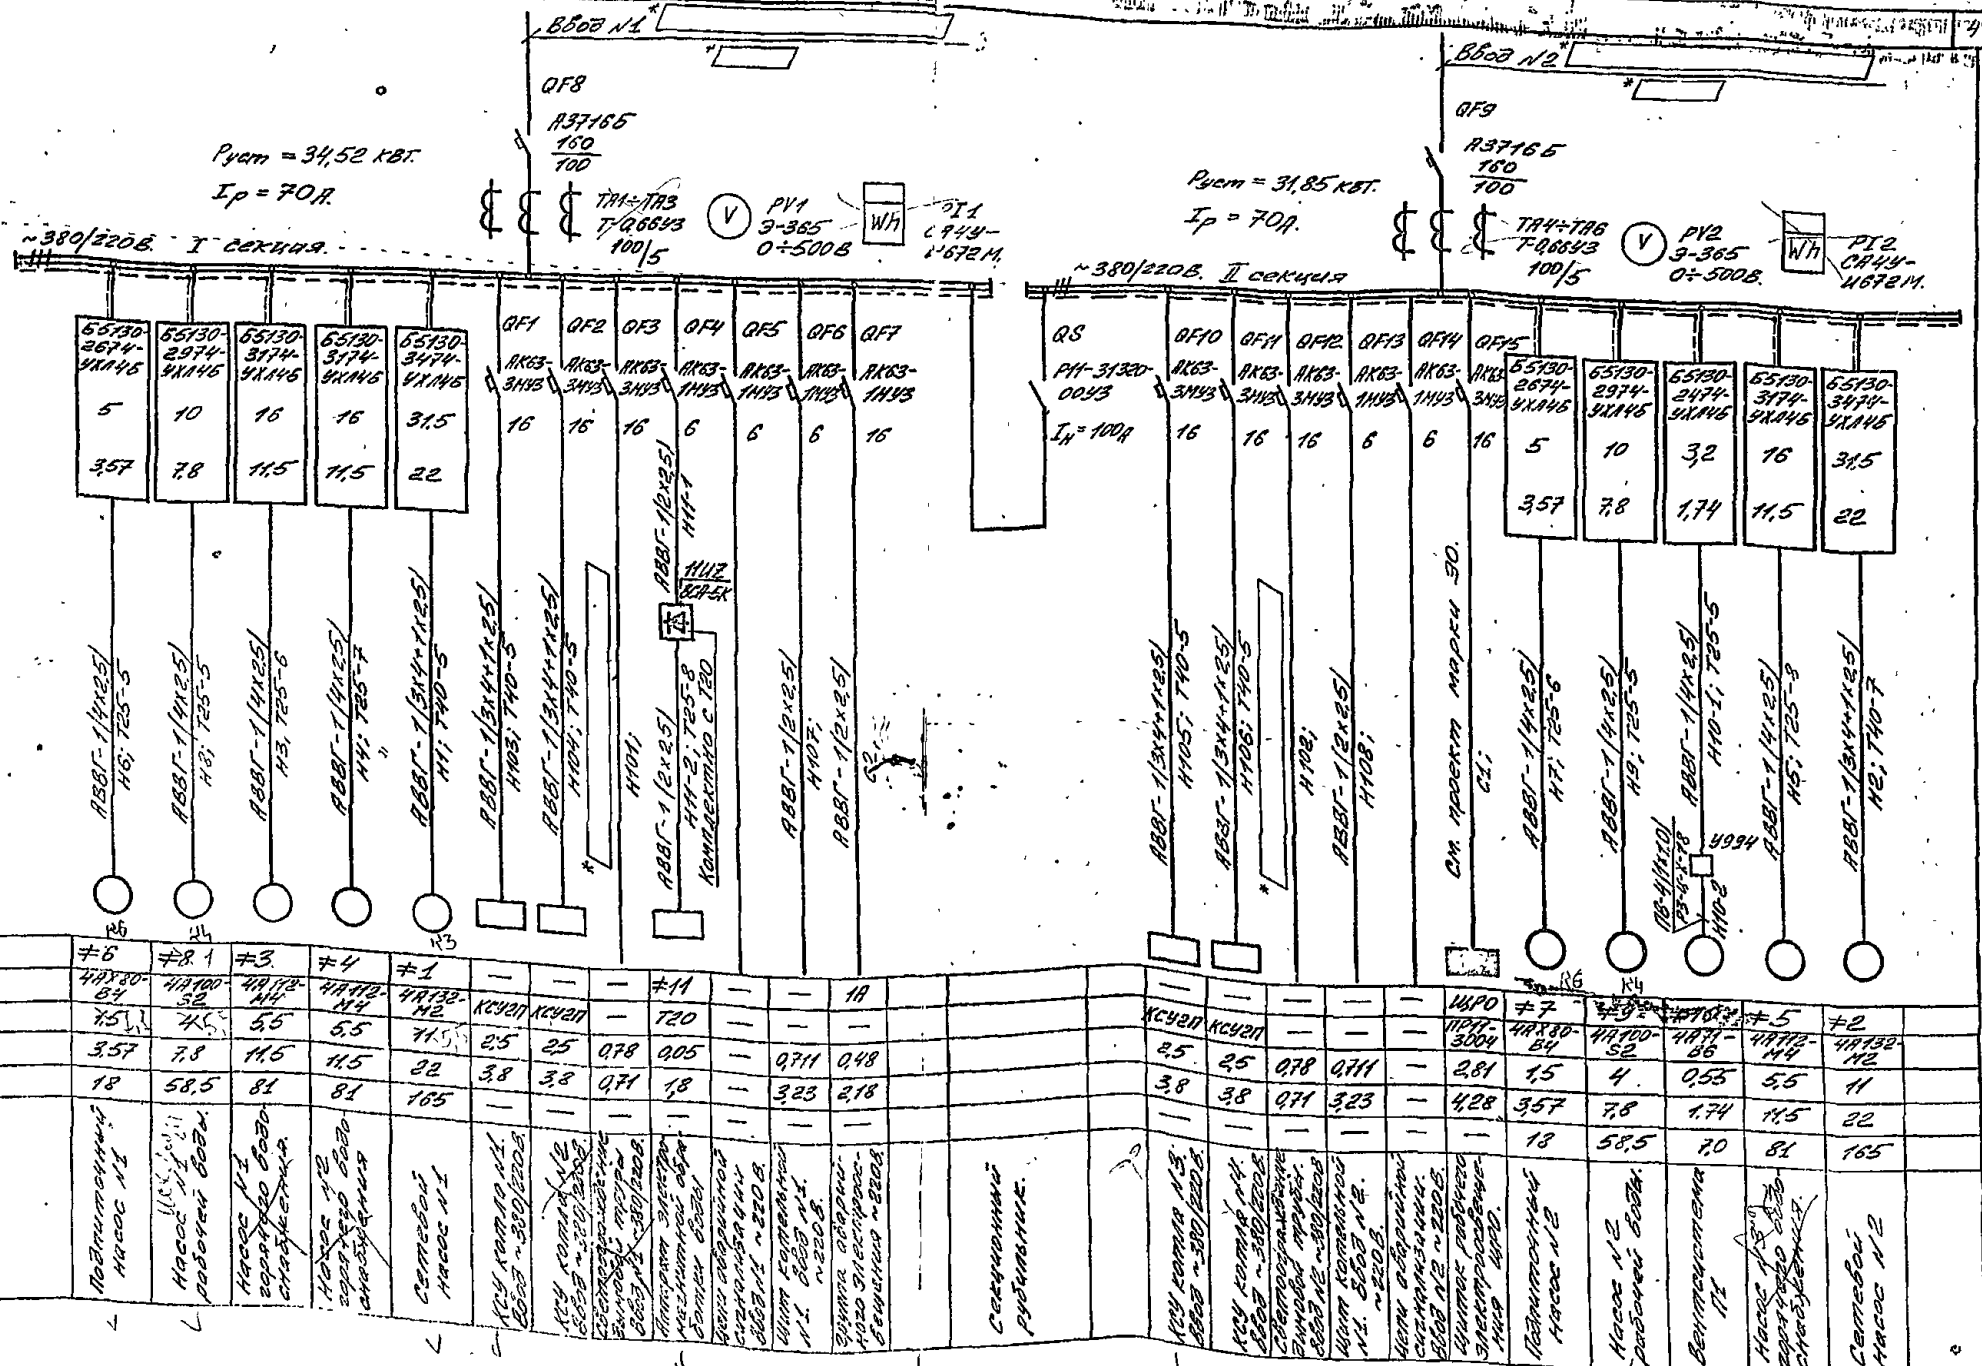 Ввод №1 *
*
QF8
А3716Б
160
100
Руст = 34,52 кВт.
Iр = 70А.
ТА1÷ТА3
Т-0,66У3
100/5
V
PV1
Э-365
0÷500В
Wh
PI1
СА4У-
И672М.
~380/220В. I секция.
Ввод №2 *
*
QF9
А3716Б
160
100
Руст = 31,85 кВт.
Iр = 70А.
ТА4÷ТА6
Т-0,66У3
100/5
V
PV2
Э-365
0÷500В.
Wh
PI2
СА4У-
И672М.
~380/220В. II секция
Б5130-
2674-
УХЛ4Б
5
3,57
Б5130-
2974-
УХЛ4Б
10
7,8
Б5130-
3174-
УХЛ4Б
16
11,5
Б5130-
3174-
УХЛ4Б
16
11,5
Б5130-
3474-
УХЛ4Б
31,5
22
QF1
АК63-
3МУ3
16
QF2
АК63-
3МУ3
16
QF3
АК63-
3МУ3
16
QF4
АК63-
1МУ3
6
QF5
АК63-
1МУ3
6
QF6
АК63-
1МУ3
6
QF7
АК63-
1МУ3
16
QS
Р11-31320-
00У3
Iн = 100А
QF10
АК63-
3МУ3
16
QF11
АК63-
3МУ3
16
QF12
АК63-
3МУ3
16
QF13
АК63-
1МУ3
6
QF14
АК63-
1МУ3
6
QF15
АК63-
3МУ3
16
Б5130-
2674-
УХЛ4Б
5
3,57
Б5130-
2974-
УХЛ4Б
10
7,8
Б5130-
2474-
УХЛ4Б
3,2
1,74
Б5130-
3174-
УХЛ4Б
16
11,5
Б5130-
3474-
УХЛ4Б
31,5
22
АВВГ-1/4х2,5/
Н6; Т25-5
АВВГ-1/4х2,5/
Н8; Т25-5
АВВГ-1/4х2,5/
Н3, Т25-6
АВВГ-1/4х2,5/
Н4; Т25-7
АВВГ-1/3х4+1х2,5/
Н1; Т40-5
АВВГ-1/3х4+1х2,5/
Н103; Т40-5
АВВГ-1/3х4+1х2,5/
Н104; Т40-5
*
Н101;
АВВГ-1/2х2,5/
Н11-1
11UZ
ВСА-5К
АВВГ-1/2х2,5/
Н11-2; Т25-8
Комплектно с Т20
АВВГ-1/2х2,5/
Н107;
АВВГ-1/2х2,5/
С2;
АВВГ-1/3х4+1х2,5/
Н105; Т40-5
АВВГ-1/3х4+1х2,5/
Н106; Т40-5
*
Н102;
АВВГ-1/2х2,5/
Н108;
См. проект марки ЭО.
С1;
АВВГ-1/4х2,5/
Н7; Т25-6
АВВГ-1/4х2,5/
Н9; Т25-5
АВВГ-1/4х2,5/
Н10-1; Т25-5
У994
ПВ-4/1х1,0/
РЗ-Ц-Х-18
Н10-2
АВВГ-1/4х2,5/
Н5; Т25-8
АВВГ-1/3х4+1х2,5/
Н2; Т40-7
К6 К4 К3 К6 К4
#6 #8.1 #3. #4 #1 — — — #11 — — 1А — — — — — ЩРО #7 #9 #5 #2
4АХ80-В4 4А100-S2 4А112-М4 4А112-М4 4А132-М2 КСУ2П КСУ2П — Т20 — — КСУ2П КСУ2П — — — ПР11-3004 4АХ80-В4 4А100-S2 4А71-В6 4А112-М4 4А132-М2
1,5 5,5 5,5 11 2,5 2,5 0,78 0,05 — 0,711 0,48 2,5 2,5 0,78 0,711 — 2,81 1,5 4 0,55 5,5 11
3,57 7,8 11,5 11,5 22 3,8 3,8 0,71 1,8 — 3,23 2,18 3,8 3,8 0,71 3,23 — 4,28 3,57 7,8 1,74 11,5 22
18 58,5 81 81 165 — — — — — — — — — — — — — 18 58,5 7,0 81 165
Подпиточный
насос №1
Насос №1
рабочей воды.
Насос №1
горячего водо-
снабжения.
Насос №2
горячего водо-
снабжения
Сетевой
насос №1
КСУ котла №1.
Ввод ~380/220В.
КСУ котла №2
Ввод ~380/220В
Светоограждение
дымовой трубы
Ввод №1 ~380/220В.
Аппарат электро-
магнитной обра-
ботки воды
Цепи аварийной
сигнализации
Ввод №1 ~220В.
Щит котельной
№1. Ввод №1.
~220В.
Группа аварий-
ного электроос-
вещения ~220В.
Секционный
рубильник.
КСУ котла №3.
Ввод ~380/220В.
КСУ котла №4.
Ввод ~380/220В.
Светоограждение
дымовой трубы.
Ввод №2 ~380/220В
Щит котельной
№1. Ввод №2.
~220В.
Цепи аварийной
сигнализации.
Ввод №2 ~220В.
Щиток рабочего
электроосвеще-
ния ЩРО.
Подпиточный
насос №2
Насос №2
рабочей воды.
Вентсистема
П1
Насос №3
горячего водо-
снабжения.
Сетевой
насос №2